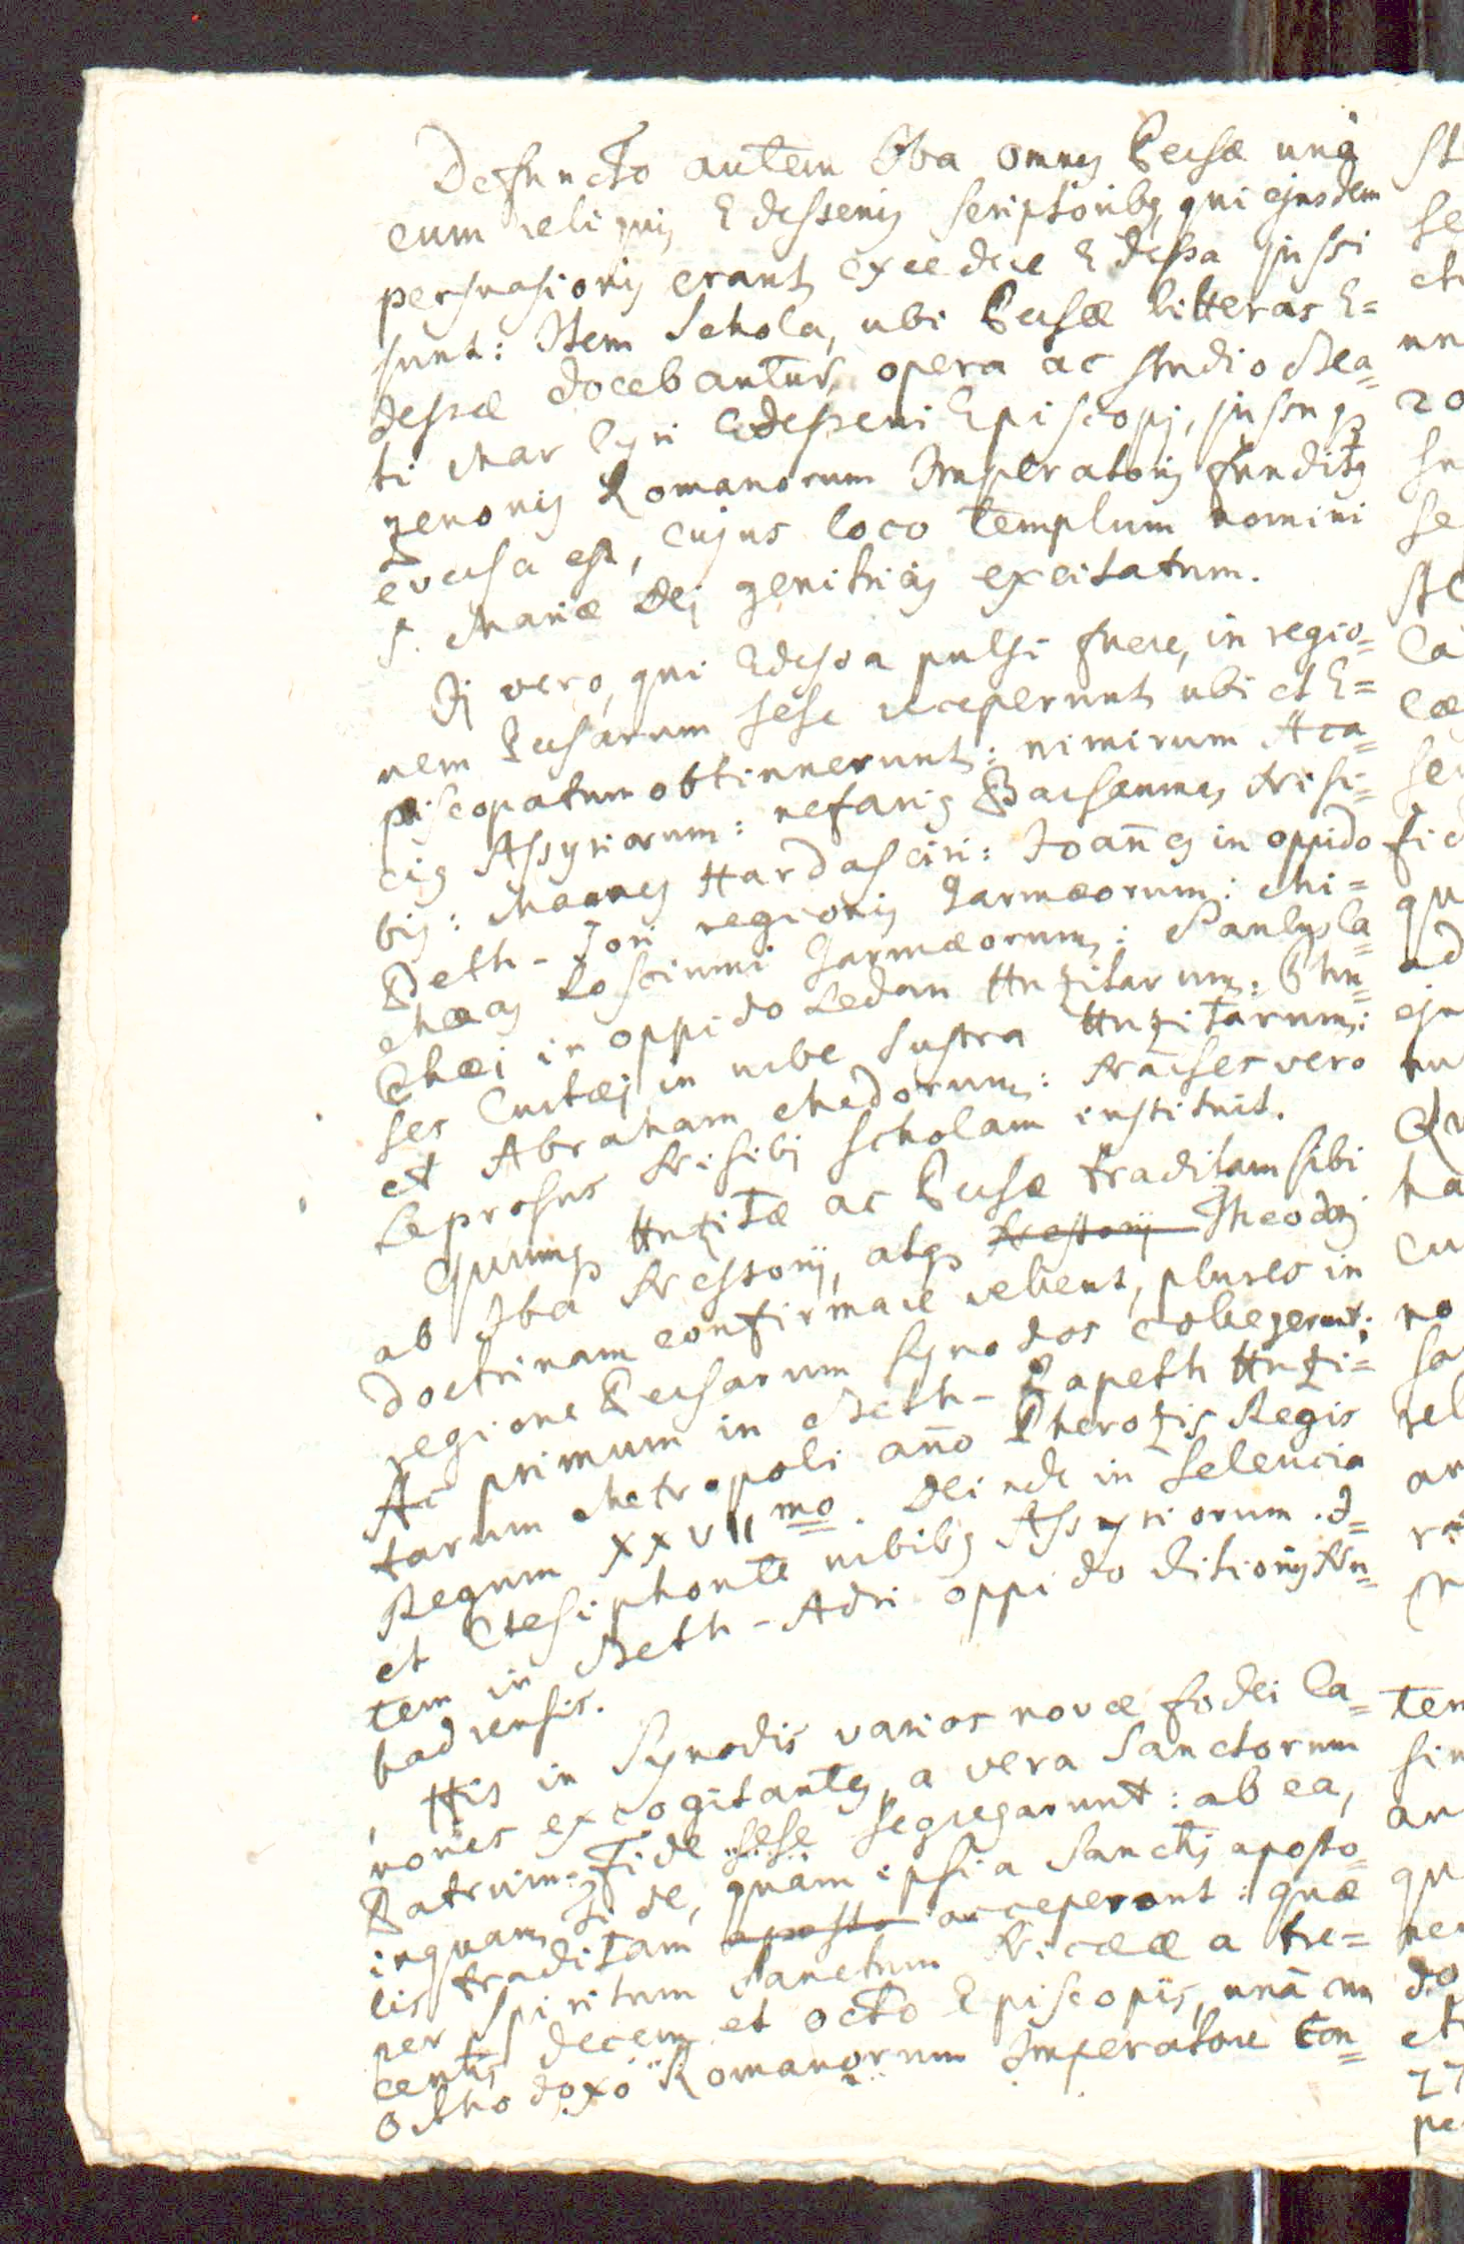 Defuncto autem Iba omnes Persæ unà
cum reliquis Edessenis scriptoribus, qui ejusdem
persuasionis erant excedere Edessa jussi
sunt: Item Schola, ubi Persæ litteras E=
dessæ docebantur, opera ac studio Bea=
ti Mar Cyri Edesseni Episcopi, jussuq;
zenonis Romanorum Imperatoris funditus
eversa est, cujus loco templum nomini
S. Mariæ Dei genitricis excitatum.
Ij vero, qui Edessa pulsi fuere, in regio=
nem Persarum sese receperunt ubi et E=
piscopatum obtinuerunt: nimirum Aca=
cis Assyriorum: nefaris Barsaumas Nisi=
bis: Maanes Hardasciri: Joañes in oppido
Beth-Sori regionis Garmæorum: Mi=
chæas Losciumi Garmæorum: Paulus
in oppido Ledan Huzitarum:
ses Curtæi in urbe Sustra Huzitarum:
et Abraham Medorum: Narses vero
Leprosus Nisibi scholam instituit.
Quumq; Huzitæ ac Persæ traditam sibi
ab Iba Nestorij, atq; Nestorij Theodori
doctrinam confirmare vellent, plures in
regione Persarum Synodos collegerunt;
Ac primum in Beth-Lapeth Huzi=
tarum Metropoli año Pherozis Regis
Regum XXVII mo. Deinde in Seleucia
et Ctesiphonte urbibus Assyriorum. I=
tem in Beth-Adri oppido ditionis Nu=
hadrensis.
His in Synodis varios novæ fidei Ca=
nones excogitantes, a vera Sanctorum
Patrum Fide sese segregarunt: ab ea,
inquam Fide, quam ipsi a Sanctis aposto=
lis traditam aposto acceperant: quæ
per Spiritum Sanctum Nicææ a tre=
centis decem et octo Episcopis, unà cum
Orthodoxo Romanorum Imperatore Con=